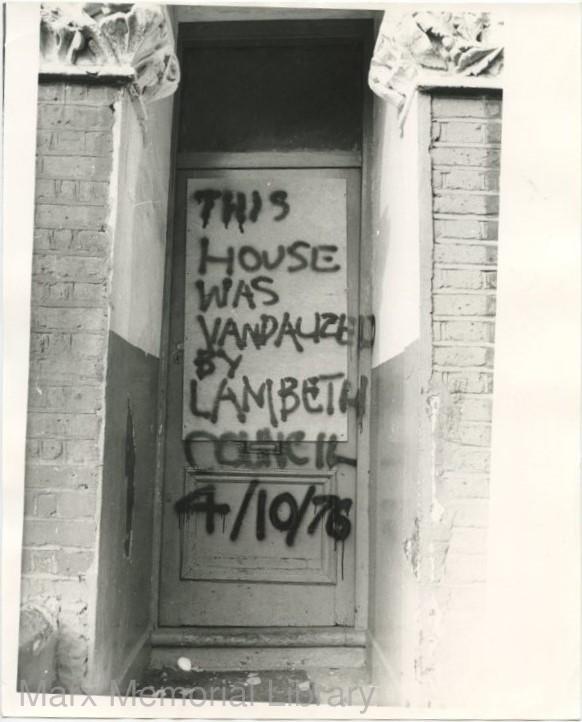 THIS
HOUSE
WAS
VANDALIZED
BY
LAMBETH
COUNCIL
4/10/76
Marx Memorial Library